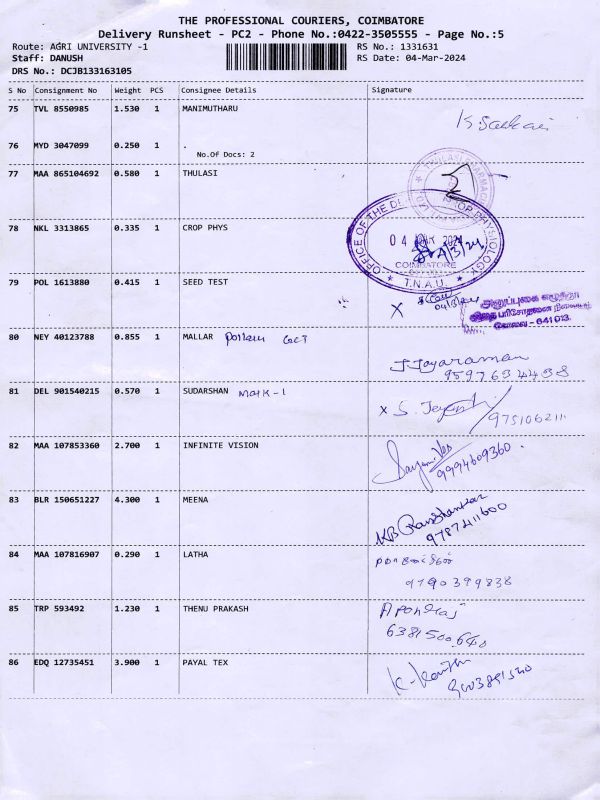 THE PROFESSIONAL COURIERS, COIMBATORE
Delivery Runsheet - PC2 - Phone No.:0422-3505555 - Page No.:5
Route: AGRI UNIVERSITY -1
Staff: DANUSH
DRS No.: DCJB133163105
RS No.: 1331631
RS Date: 04-Mar-2024
S No Consignment No Weight PCS Consignee Details Signature
75 TVL 8550985 1.530 1 MANIMUTHARU
76 MYD 3047099 0.250 1 .
No.Of Docs: 2
77 MAA 865104692 0.580 1 THULASI
78 NKL 3313865 0.335 1 CROP PHYS
OFFICE OF THE
CROP PHYSIOLOGY
04 MAR 2024
COIMBATORE
T.N.A.U.
79 POL 1613880 0.415 1 SEED TEST X
கோவை - 641 013.
80 NEY 40123788 0.855 1 MALLAR
J Jayaraman
9597694498
81 DEL 901540215 0.570 1 SUDARSHAN Mark-1 X S.
975106211
82 MAA 107853360 2.700 1 INFINITE VISION
9994609360.
83 BLR 150651227 4.300 1 MEENA
9787411600
84 MAA 107816907 0.290 1 LATHA
9790399838
85 TRP 593492 1.230 1 THENU PRAKASH
6381500640
86 EDQ 12735451 3.900 1 PAYAL TEX